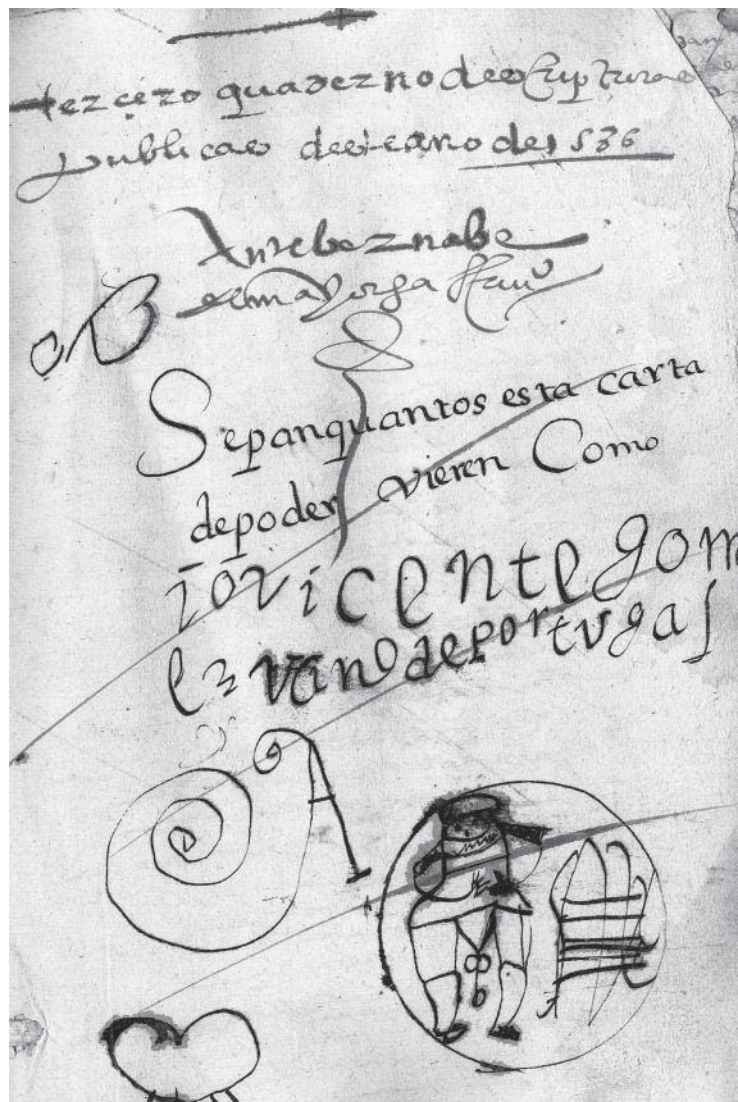 tercero quaderno de escripturas
publicas deste año de 1586
Ante bernabe
de mayorga
Sepan quantos esta carta
de poder vieren Como
io vicente gom
ez vzino de portugal
A